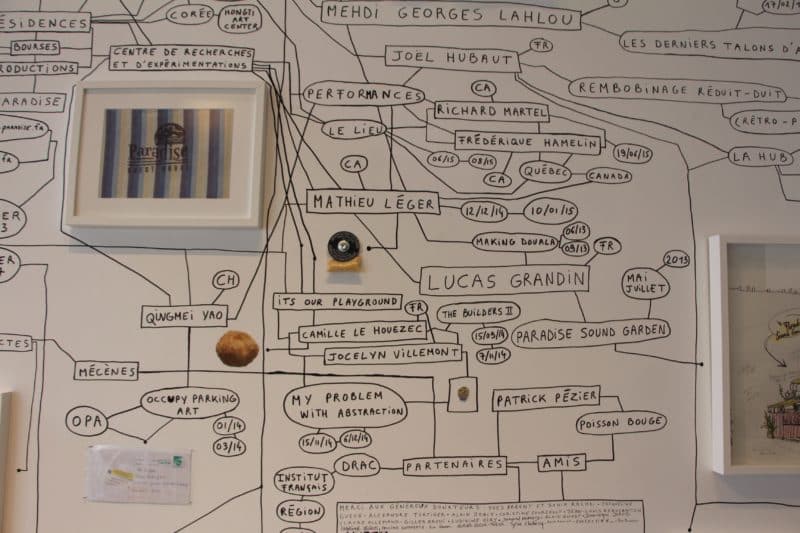 CORÉE
HONGTI
ART
CENTER
MEHDI GEORGES LAHLOU
17/02/
LES DERNIERS TALONS D'A
ÉSIDENCES
BOURSES
RODUCTIONS
PARADISE
paradise.fr
fr
CENTRE DE RECHERCHES
ET D'EXPÉRIMENTATIONS
JOËL HUBAUT
FR
REMBOBINAGE RÉDUIT-DUIT
(RÉTRO-P
LA HUB
PERFORMANCES
CA
RICHARD MARTEL
LE LIEU
FRÉDÉRIQUE HAMELIN
19/06/15
06/15
08/15
CA
QUÉBEC
CANADA
Paradise
CA
MATHIEU LÉGER
12/12/14
10/01/15
MAKING DOUALA
06/13
09/13
FR
LUCAS GRANDIN
2013
MAI
JUILLET
PARADISE SOUND GARDEN
CH
QINGMEI YAO
ITS OUR PLAYGROUND
FR
CAMILLE LE HOUEZEC
THE BUILDERS II
JOCELYN VILLEMONT
15/09/14
7/11/14
CTES
MÉCÈNES
OCCUPY PARKING
ART
OPA
01/14
03/14
MY PROBLEM
WITH ABSTRACTION
15/11/14
6/12/14
PATRICK PÉZIER
POISSON BOUGE
DRAC
PARTENAIRES
AMIS
INSTITUT
FRANÇAIS
RÉGION
MERCI AUX GÉNÉREUX DONATEURS